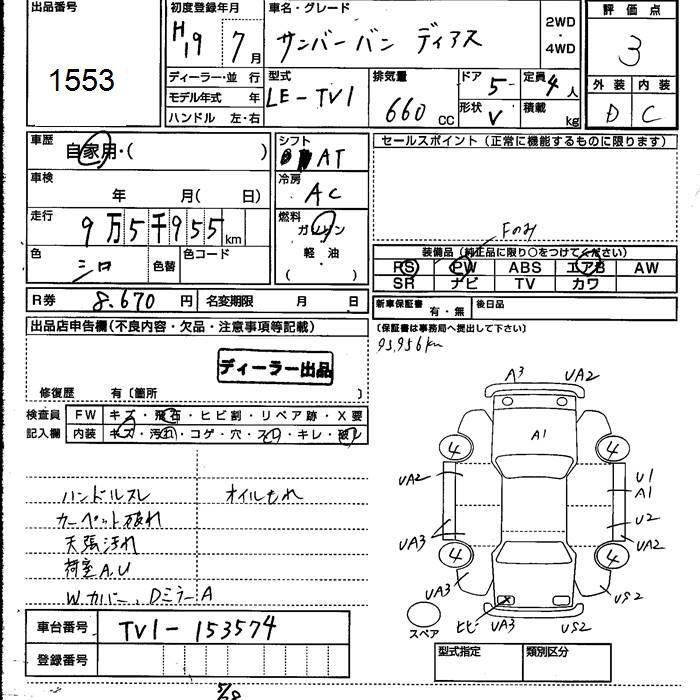 出品番号
1553
初度登録年月
H19 7月
車名・グレード
サンバーバン ディアス
2WD・4WD
評価点
3
外装 内装
D C
ディーラー・並 行
モデル年式 年
ハンドル 左・右
型式
LE-TV1
排気量
660 cc
ドア 5
定員 4人
形状 V
積載 kg
車歴
自家用・( )
シフト
AT
車検
年 月( 日)
冷房
AC
走行
9万5千955km
燃料
ガソリン
軽油
( )
色
シロ
色替
色コード
R券 8.670円 名変期限 月 日
セールスポイント (正常に機能するものに限ります)
Fのみ
装備品 (純正品に限り○をつけてください)
PS PW ABS エアB AW
SR ナビ TV カワ
新車保証書 有・無 後日品
(保証書は事務局へ提出して下さい)
95,956km
出品店申告欄 (不良内容・欠品・注意事項等記載)
ディーラー出品
修復歴 有〔箇所 〕
検査員 FW キズ・飛石・ヒビ割・リペア跡・X要
記入欄 内装 キズ・汚れ・コゲ・穴・スレ・キレ・破れ
ハンドルスレ オイルもれ
カーペット破れ
天張汚れ
荷室A.U
W.カバー、DミラーA
車台番号 TV1-153574
登録番号
A3 UA2
A1
4 4
UA2 U1
A1
UA3 U2
UA2
4 4
UA3 US2
ヒビ UA3 US2
スペア
型式指定 類別区分
7/8